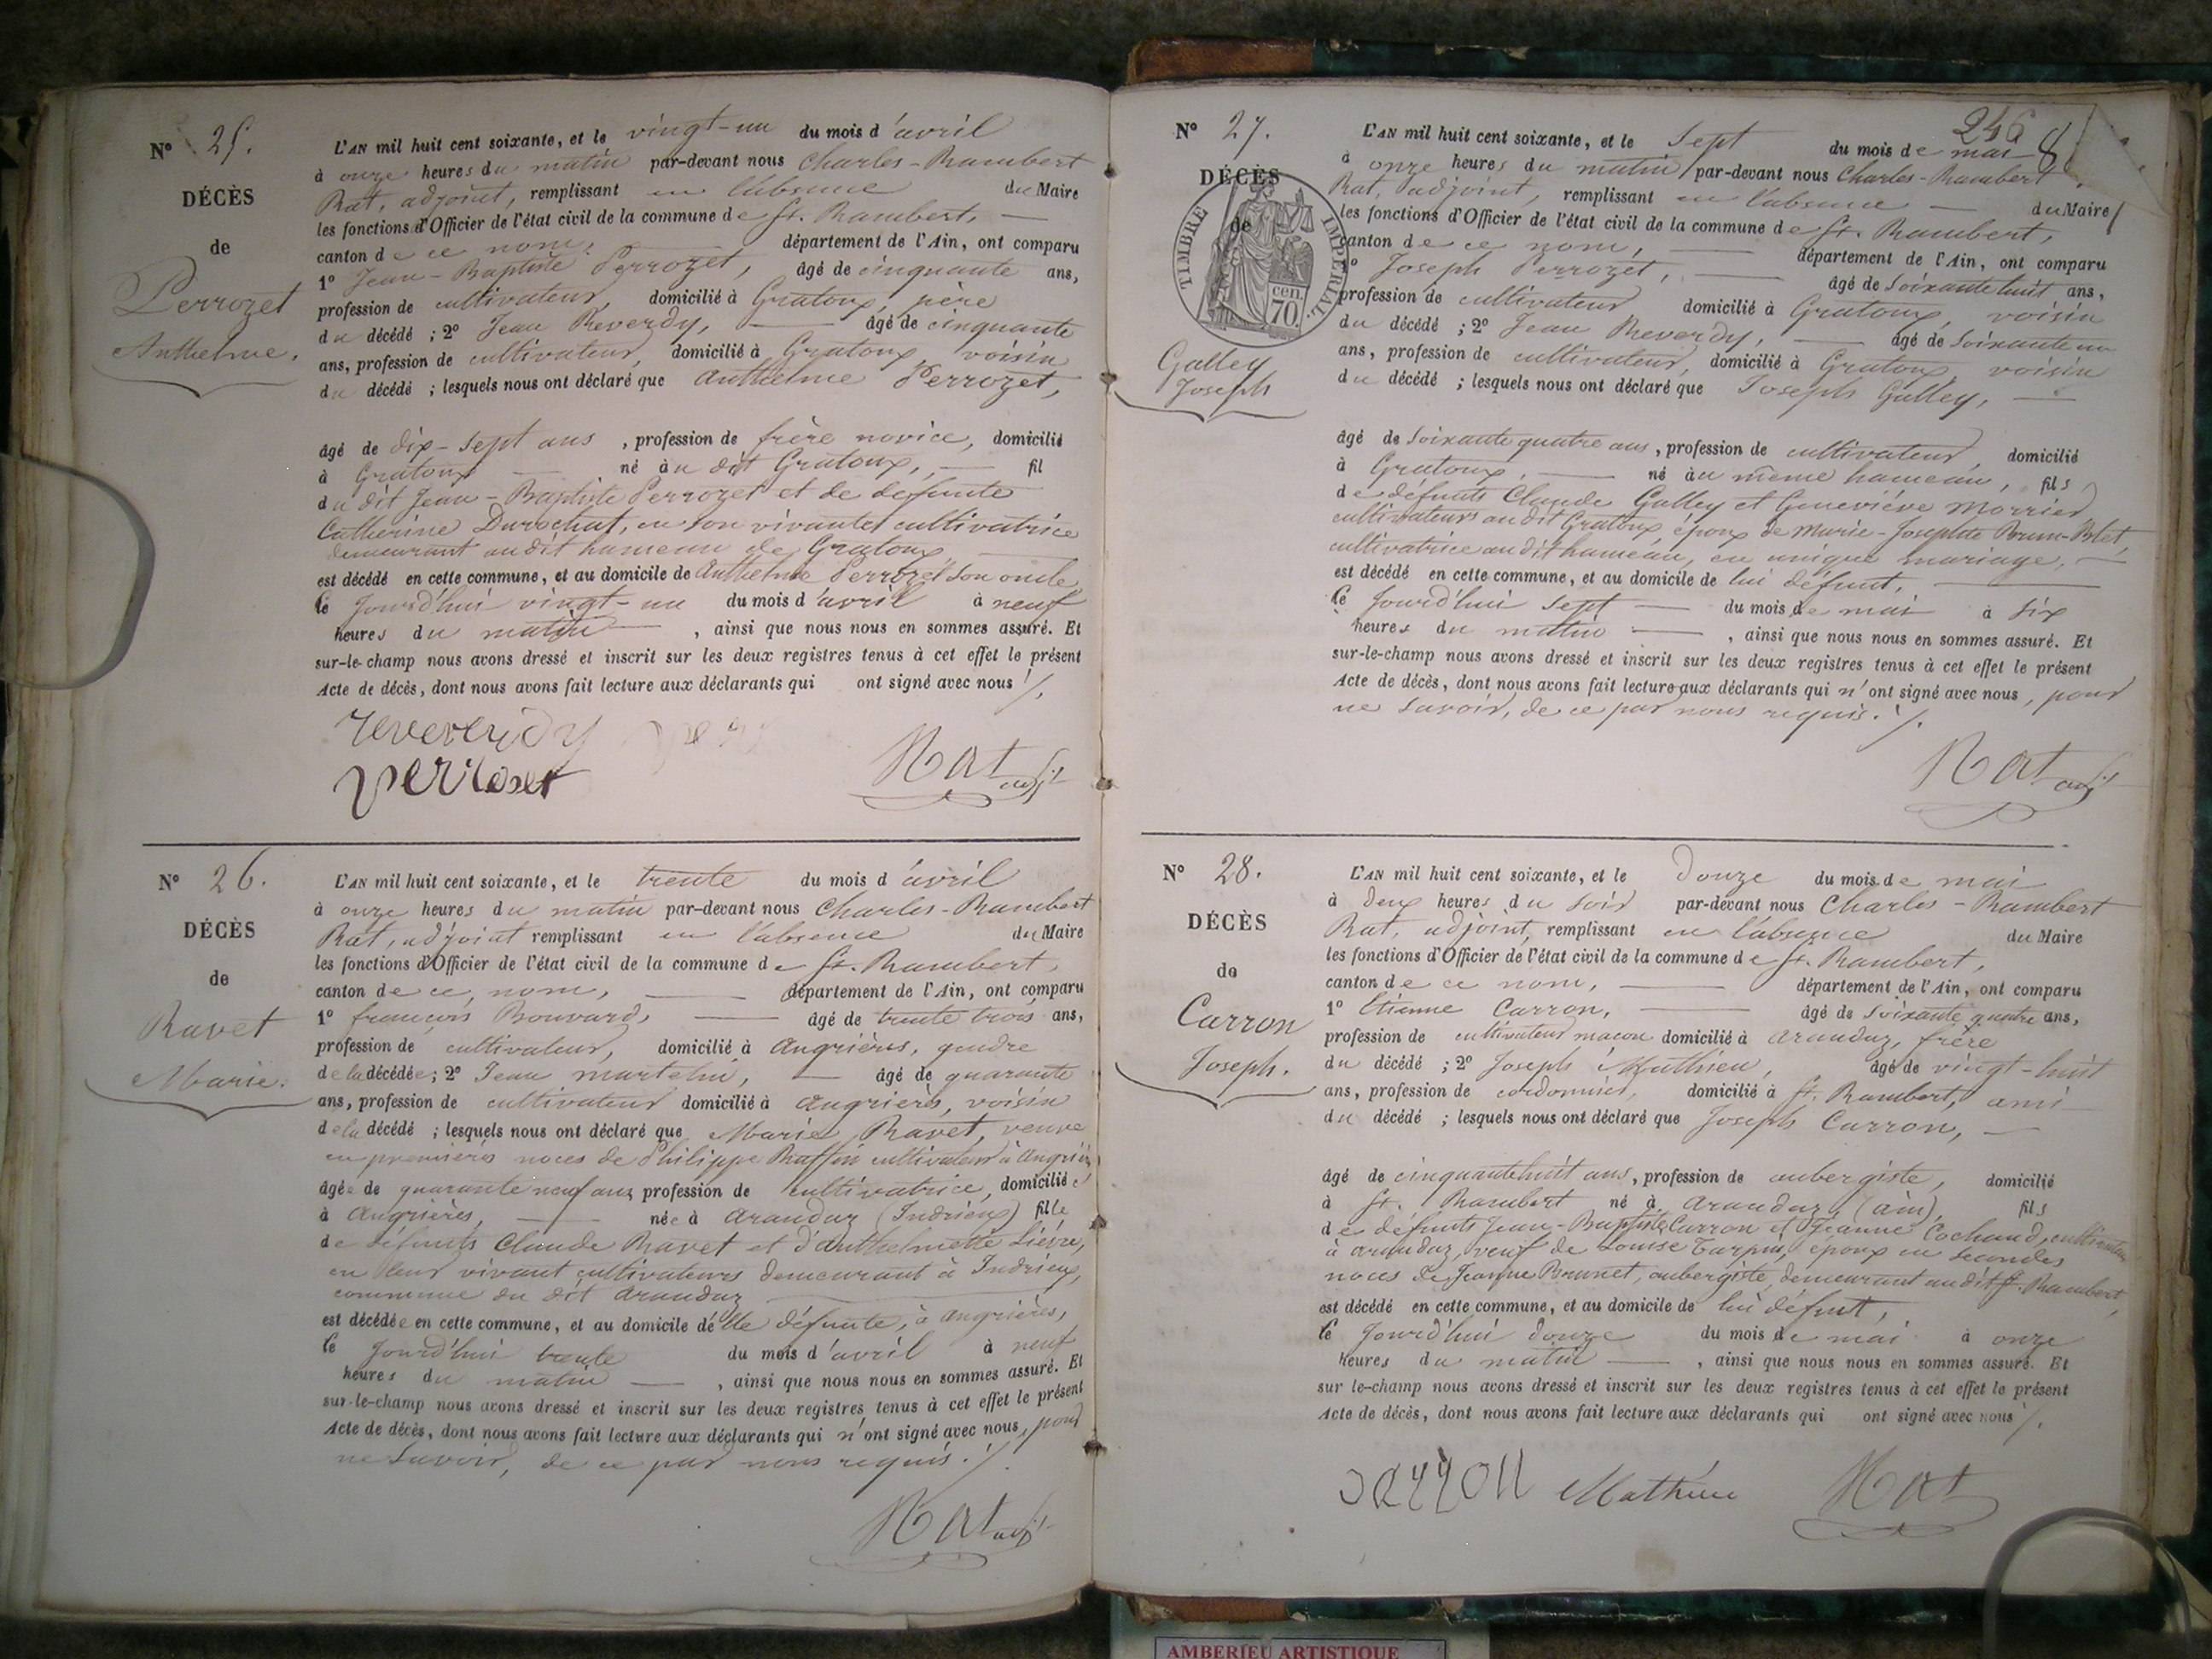 N° 25.
DÉCÈS
de
Perrozet
Anthelme.
L'AN mil huit cent soixante, et le vingt-un du mois d'avril
à onze heures du matin par-devant nous Charles-Rambert
Rat, adjoint, remplissant en l'absence du Maire
les fonctions d'Officier de l'état civil de la commune de St. Rambert,
canton de ce nom, département de l'Ain, ont comparu
1° Jean-Baptiste Perrozet, âgé de cinquante ans,
profession de cultivateur, domicilié à Gratoux, père
du décédé ; 2° Jean Reverdy, âgé de cinquante
ans, profession de cultivateur, domicilié à Gratoux, voisin
du décédé ; lesquels nous ont déclaré que Anthelme Perrozet,
âgé de dix-sept ans, profession de frère novice, domicilié
à Gratoux né au dit Gratoux, fil
du dit Jean-Baptiste Perrozet et de defunte
Catherine Durochat, en son vivante cultivatrice
demeurant audit hameau de Gratoux,
est décédé en cette commune, et au domicile de Anthelme Perrozet son oncle
le Jourd'hui vingt-un du mois d'avril à neuf
heures du matin, ainsi que nous nous en sommes assuré. Et
sur-le-champ nous avons dressé et inscrit sur les deux registres tenus à cet effet le présent
Acte de décès, dont nous avons fait lecture aux déclarants qui ont signé avec nous ./.
reverridy
perroset
Rat adjt
N° 26.
DÉCÈS
de
Ravet
Marie.
L'AN mil huit cent soixante, et le trente du mois d'avril
à onze heures du matin par-devant nous Charles-Rambert
Rat, adjoint remplissant en l'absence du Maire
les fonctions d'Officier de l'état civil de la commune de St. Rambert,
canton de ce nom, département de l'Ain, ont comparu
1° françois Bouvard, âgé de trente trois ans,
profession de cultivateur, domicilié à Angrières, gendre
de la décédée ; 2° Jean martelin, âgé de quarante
ans, profession de cultivateur domicilié à Angrières, voisin
de la décédé ; lesquels nous ont déclaré que Marie Ravet, veuve
en premières noces de Philippe Ruffin cultivateur à Angrières
âgée de quarante neuf ans profession de cultivatrice, domiciliée
à Angrières, née à Arandaz (Indrieux) fille
de défunts Claude Ravet et d'Anthelmette Lièvre,
en leur vivant cultivateurs demeurant à Indrieux,
commune du dit Arandaz
est décédée en cette commune, et au domicile d'elle défunte, à Angrières,
le Jourd'hui trente du mois d'avril à neuf
heures du matin, ainsi que nous nous en sommes assuré. Et
sur-le-champ nous avons dressé et inscrit sur les deux registres tenus à cet effet le présent
Acte de décès, dont nous avons fait lecture aux déclarants qui n'ont signé avec nous, pour
ne Savoir, de ce par nous requis ./.
Rat adjt
246
8
N° 27.
DÉCÈS
de
TIMBRE IMPERIAL
cen. 70.
Galley
Joseph
L'AN mil huit cent soixante, et le Sept du mois de mai
à onze heures du matin par-devant nous Charles-Rambert
Rat, adjoint, remplissant en l'absence du Maire
les fonctions d'Officier de l'état civil de la commune de St. Rambert,
canton de ce nom, département de l'Ain, ont comparu
1° Joseph Perrozet, âgé de Soixante huit ans,
profession de cultivateur domicilié à Gratoux, voisin
du décédé ; 2° Jean Reverdy, âgé de Soixante un
ans, profession de cultivateur, domicilié à Gratoux, voisin
du décédé ; lesquels nous ont déclaré que Joseph Galley,
âgé de Soixante quatre ans, profession de cultivateur, domicilié
à Gratoux, né au même hameau, fils
de défunts Claude Galley et Geneviève Morrier
cultivateurs audit Gratoux, époux de Marie-Josephte Brun-Blet,
cultivatrice audit hameau, en unique mariage,
est décédé en cette commune, et au domicile de lui défunt,
le Jourd'hui Sept du mois de mai à Six
heures du matin, ainsi que nous nous en sommes assuré. Et
sur-le-champ nous avons dressé et inscrit sur les deux registres tenus à cet effet le présent
Acte de décès, dont nous avons fait lecture aux déclarants qui n'ont signé avec nous, pour
ne Savoir, de ce par nous requis ./.
Rat adjt
N° 28.
DÉCÈS
de
Carron
Joseph.
L'AN mil huit cent soixante, et le Douze du mois de mai
à Deux heures du Soir par-devant nous Charles-Rambert
Rat, adjoint, remplissant en l'absence du Maire
les fonctions d'Officier de l'état civil de la commune de St. Rambert,
canton de ce nom, département de l'Ain, ont comparu
1° Etienne Carron, âgé de Soixante quatre ans,
profession de cultivateur maçon domicilié à Arandaz, frère
du décédé ; 2° Joseph Mathieu, âgé de vingt-huit
ans, profession de cordonnier, domicilié à St. Rambert, ami
du décédé ; lesquels nous ont déclaré que Joseph Carron,
âgé de cinquante huit ans, profession de aubergiste, domicilié
à St. Rambert né à Arandaz (ain), fils
de défunts Jean-Baptiste Carron et Jeanne Cochaud, cultivateurs
à arandaz, veuf de Louise Turpin, époux en Secondes
noces de Jeanne Brunet, aubergiste, demeurant audit St. Rambert,
est décédé en cette commune, et au domicile de lui défunt,
le Jourd'hui douze du mois de mai à onze
heures du matin, ainsi que nous nous en sommes assuré. Et
sur le-champ nous avons dressé et inscrit sur les deux registres tenus à cet effet le présent
Acte de décès, dont nous avons fait lecture aux déclarants qui ont signé avec nous ./.
carron Mathieu Rat
AMBERIEU ARTISTIQUE